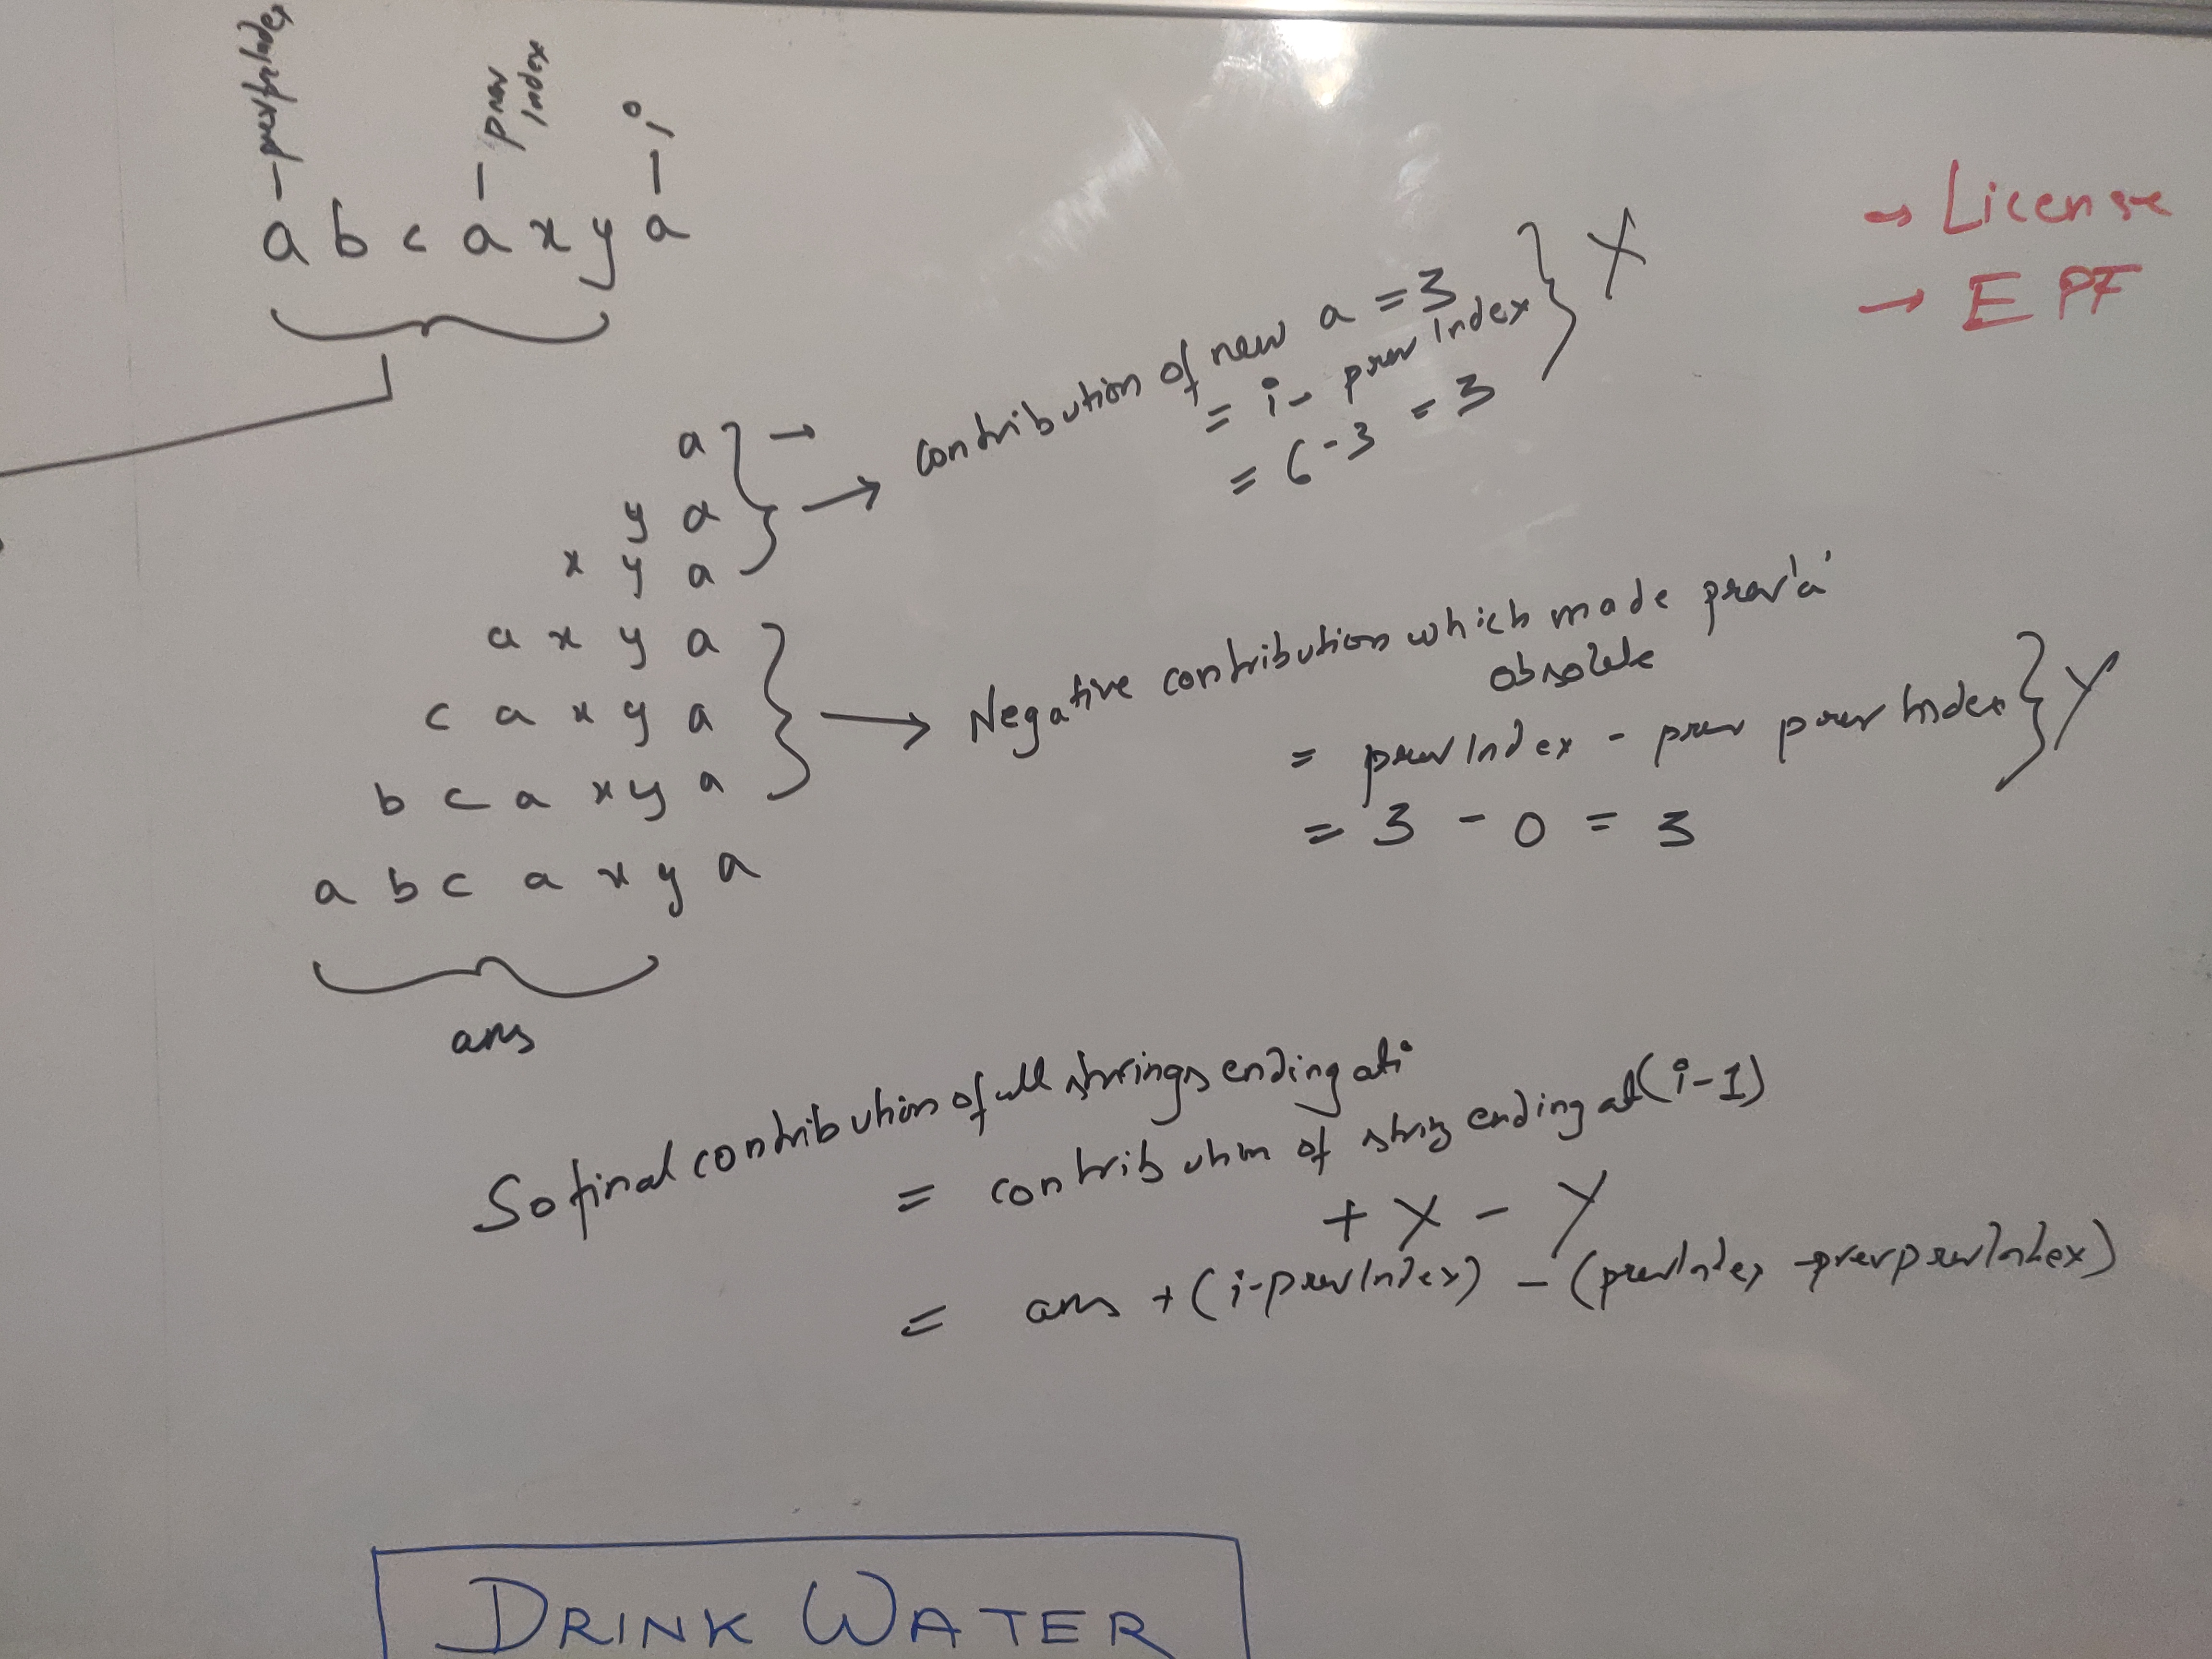 prevprevIndex
prev
Index
i
a b c a x y a
→ License
→ EPF
a →
y a
x y a
→ contribution of new a = 3
= i - prevIndex } X
= 6 - 3 = 3
a x y a
c a x y a
b c a x y a
→ Negative contribution which made prev 'a'
obsolete
= prevIndex - prev prev Index } Y
= 3 - 0 = 3
a b c a x y a
ans
So final contribution of all strings ending at i
= contribution of string ending at (i-1)
+ X - Y
= ans + (i-prevIndex) - (prevIndex - prevprevIndex)
DRINK WATER